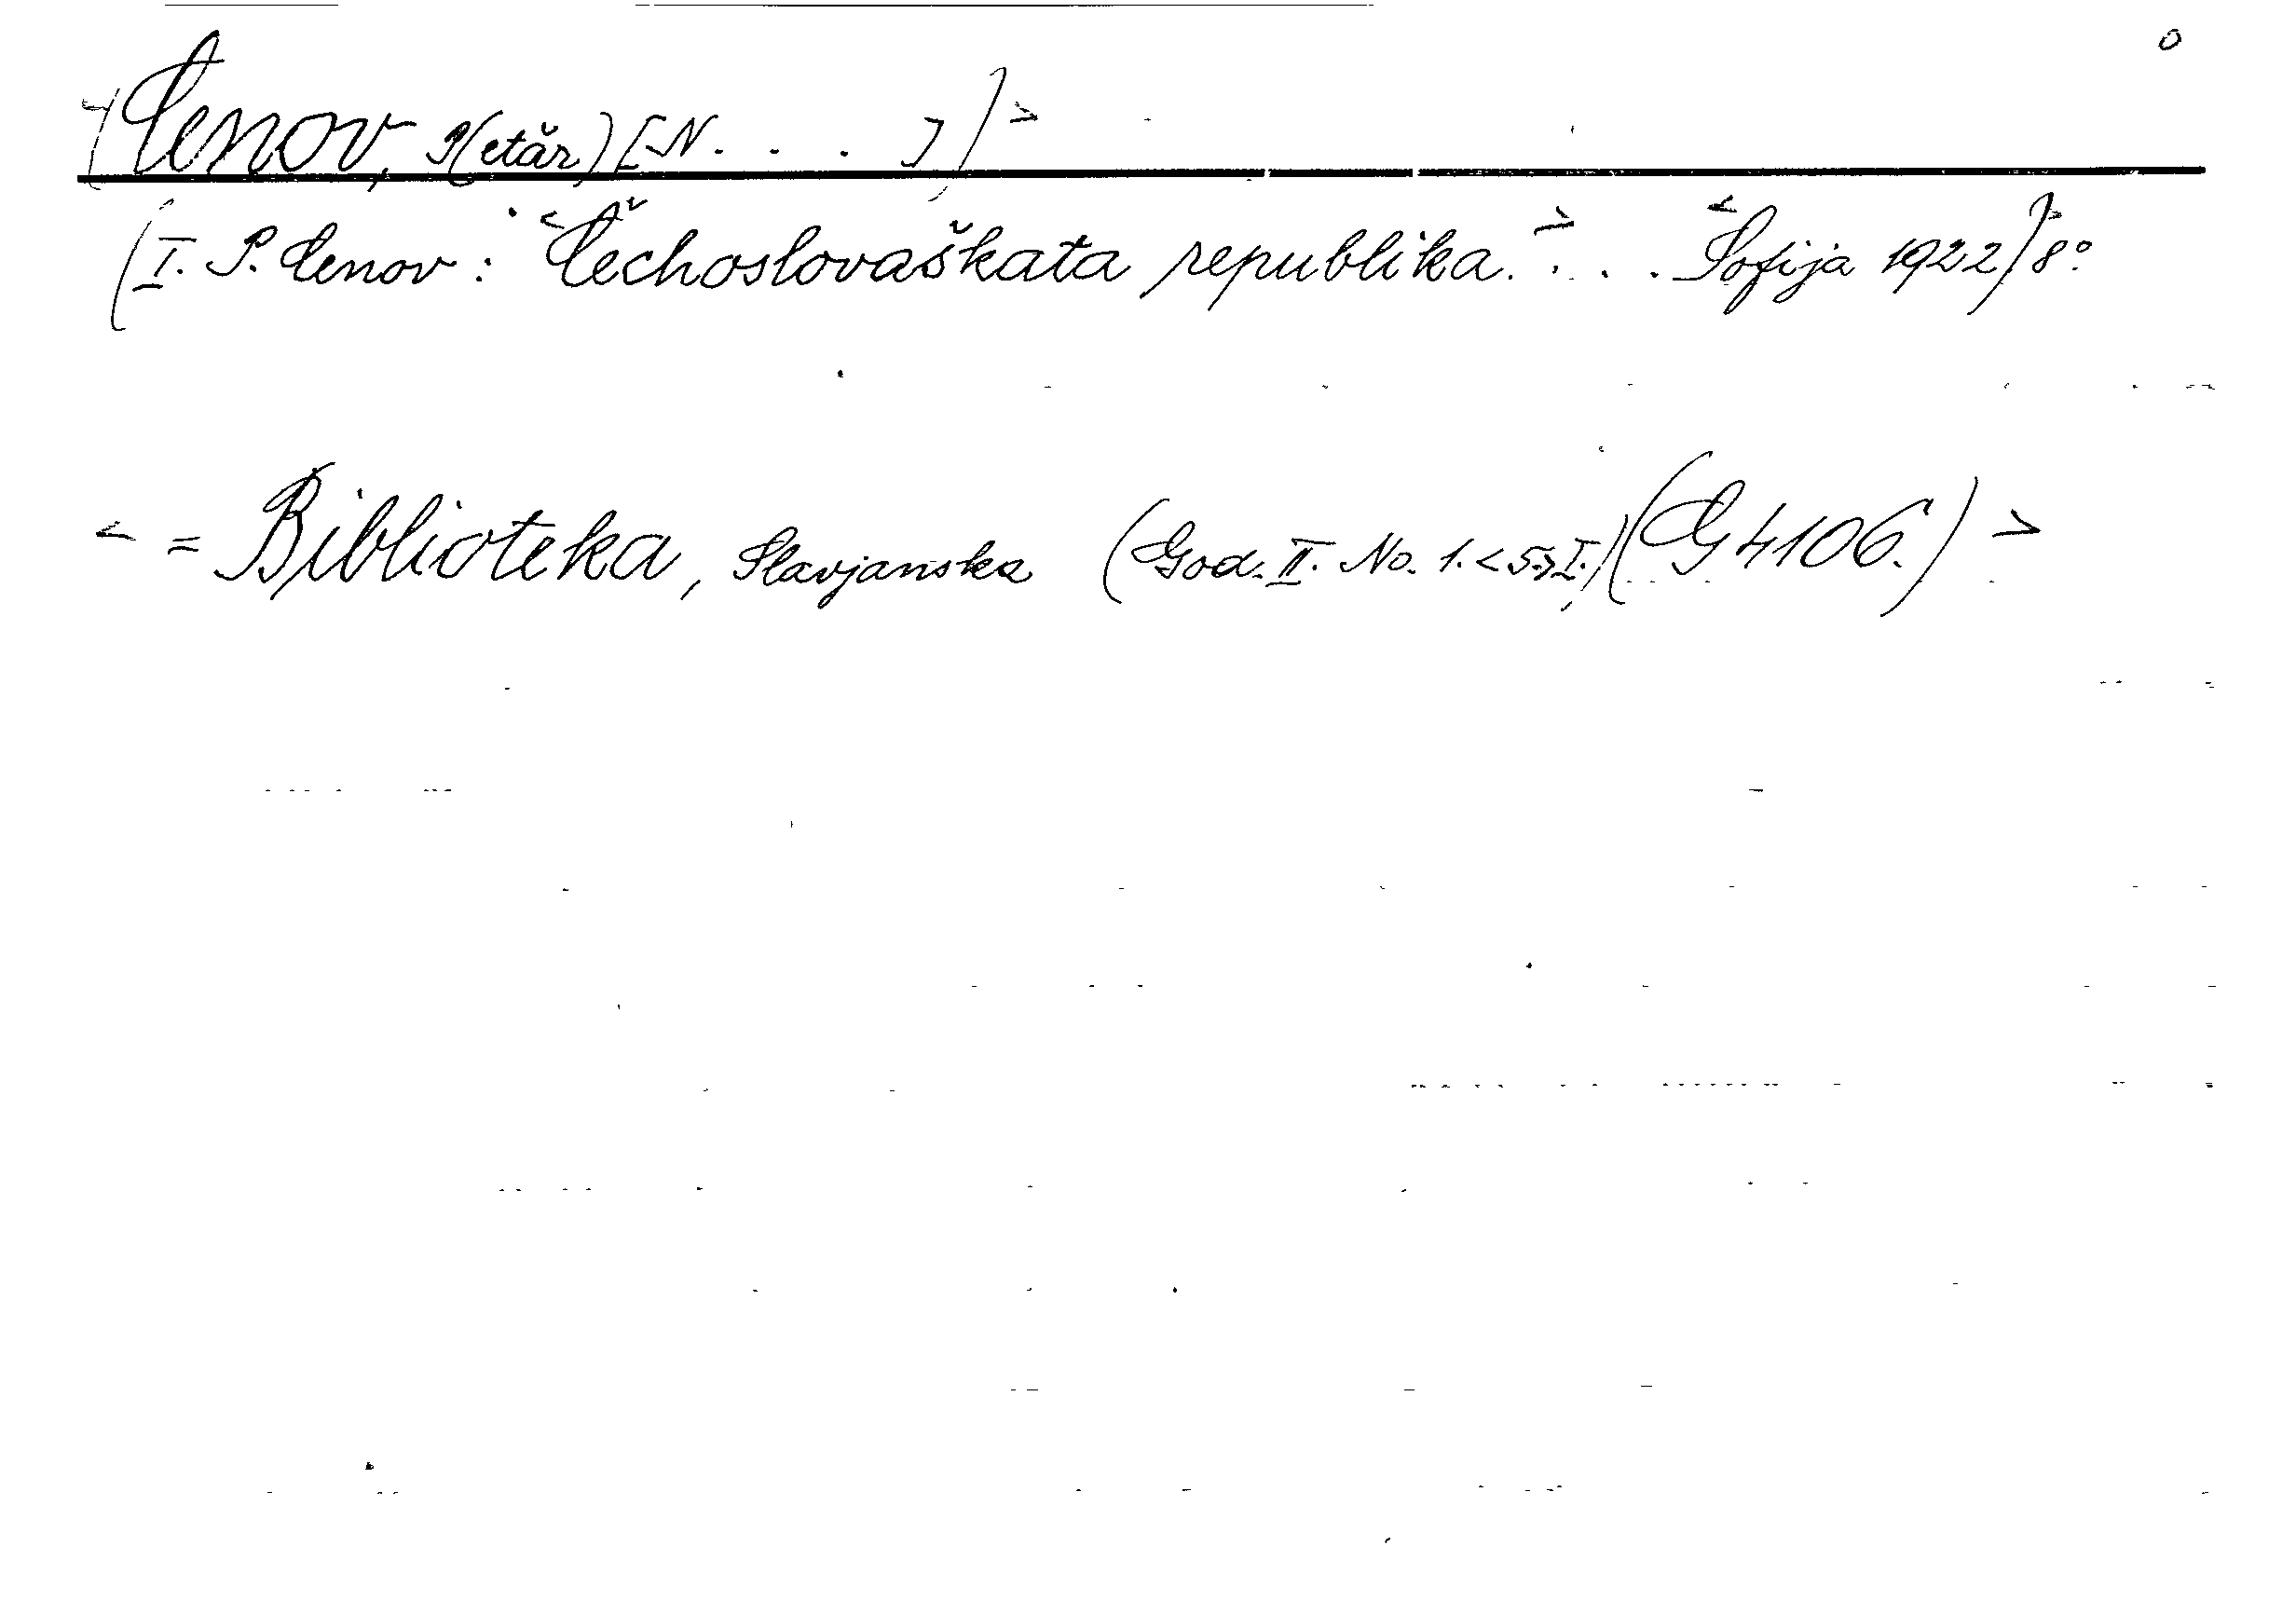 o
<[Cenov, P(etăr) [N. . . ]]>
[I. P. Cenov: <Čechoslovaškata republika.> . . . <Sofija 1922]> 8°.
< = Biblioteka, Slavjanska (God. II. No. 1. <5.> I.) (G 4106.) >